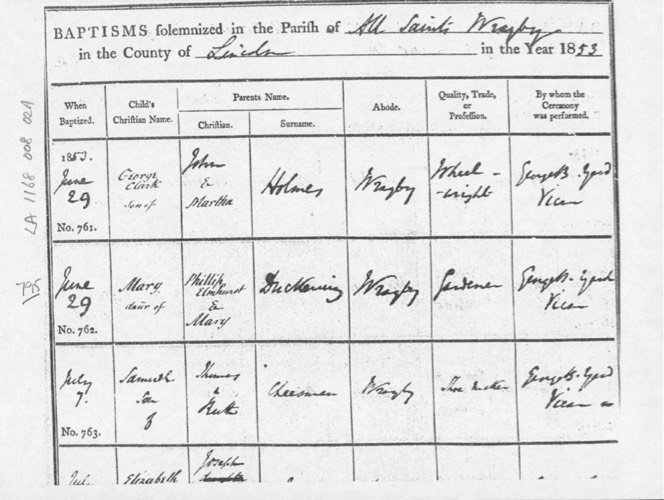 BAPTISMS solemnized in the Parish of All Saints Wragby
in the County of Lincoln in the Year 1853
When Baptized. Child's Christian Name. Parents Name. Abode. Quality, Trade, or Profession. By whom the Ceremony was performed.
Christian. Surname.
1853.
June 29
No. 761.
George Clark son of
John & Martha
Holmes
Wragby
Wheel-wright
George B. Vicar
June 29
No. 762.
Mary daur of
Phillip Elmhurst & Mary
Duckering
Wragby
Gardener
George B. Vicar
July 7.
No. 763.
Samuel Son of
Thomas & Ruth
Cheesman
Wragby
Shoe maker
George B. Vicar
Elizabeth
Joseph
LA 1168 008 02A
795